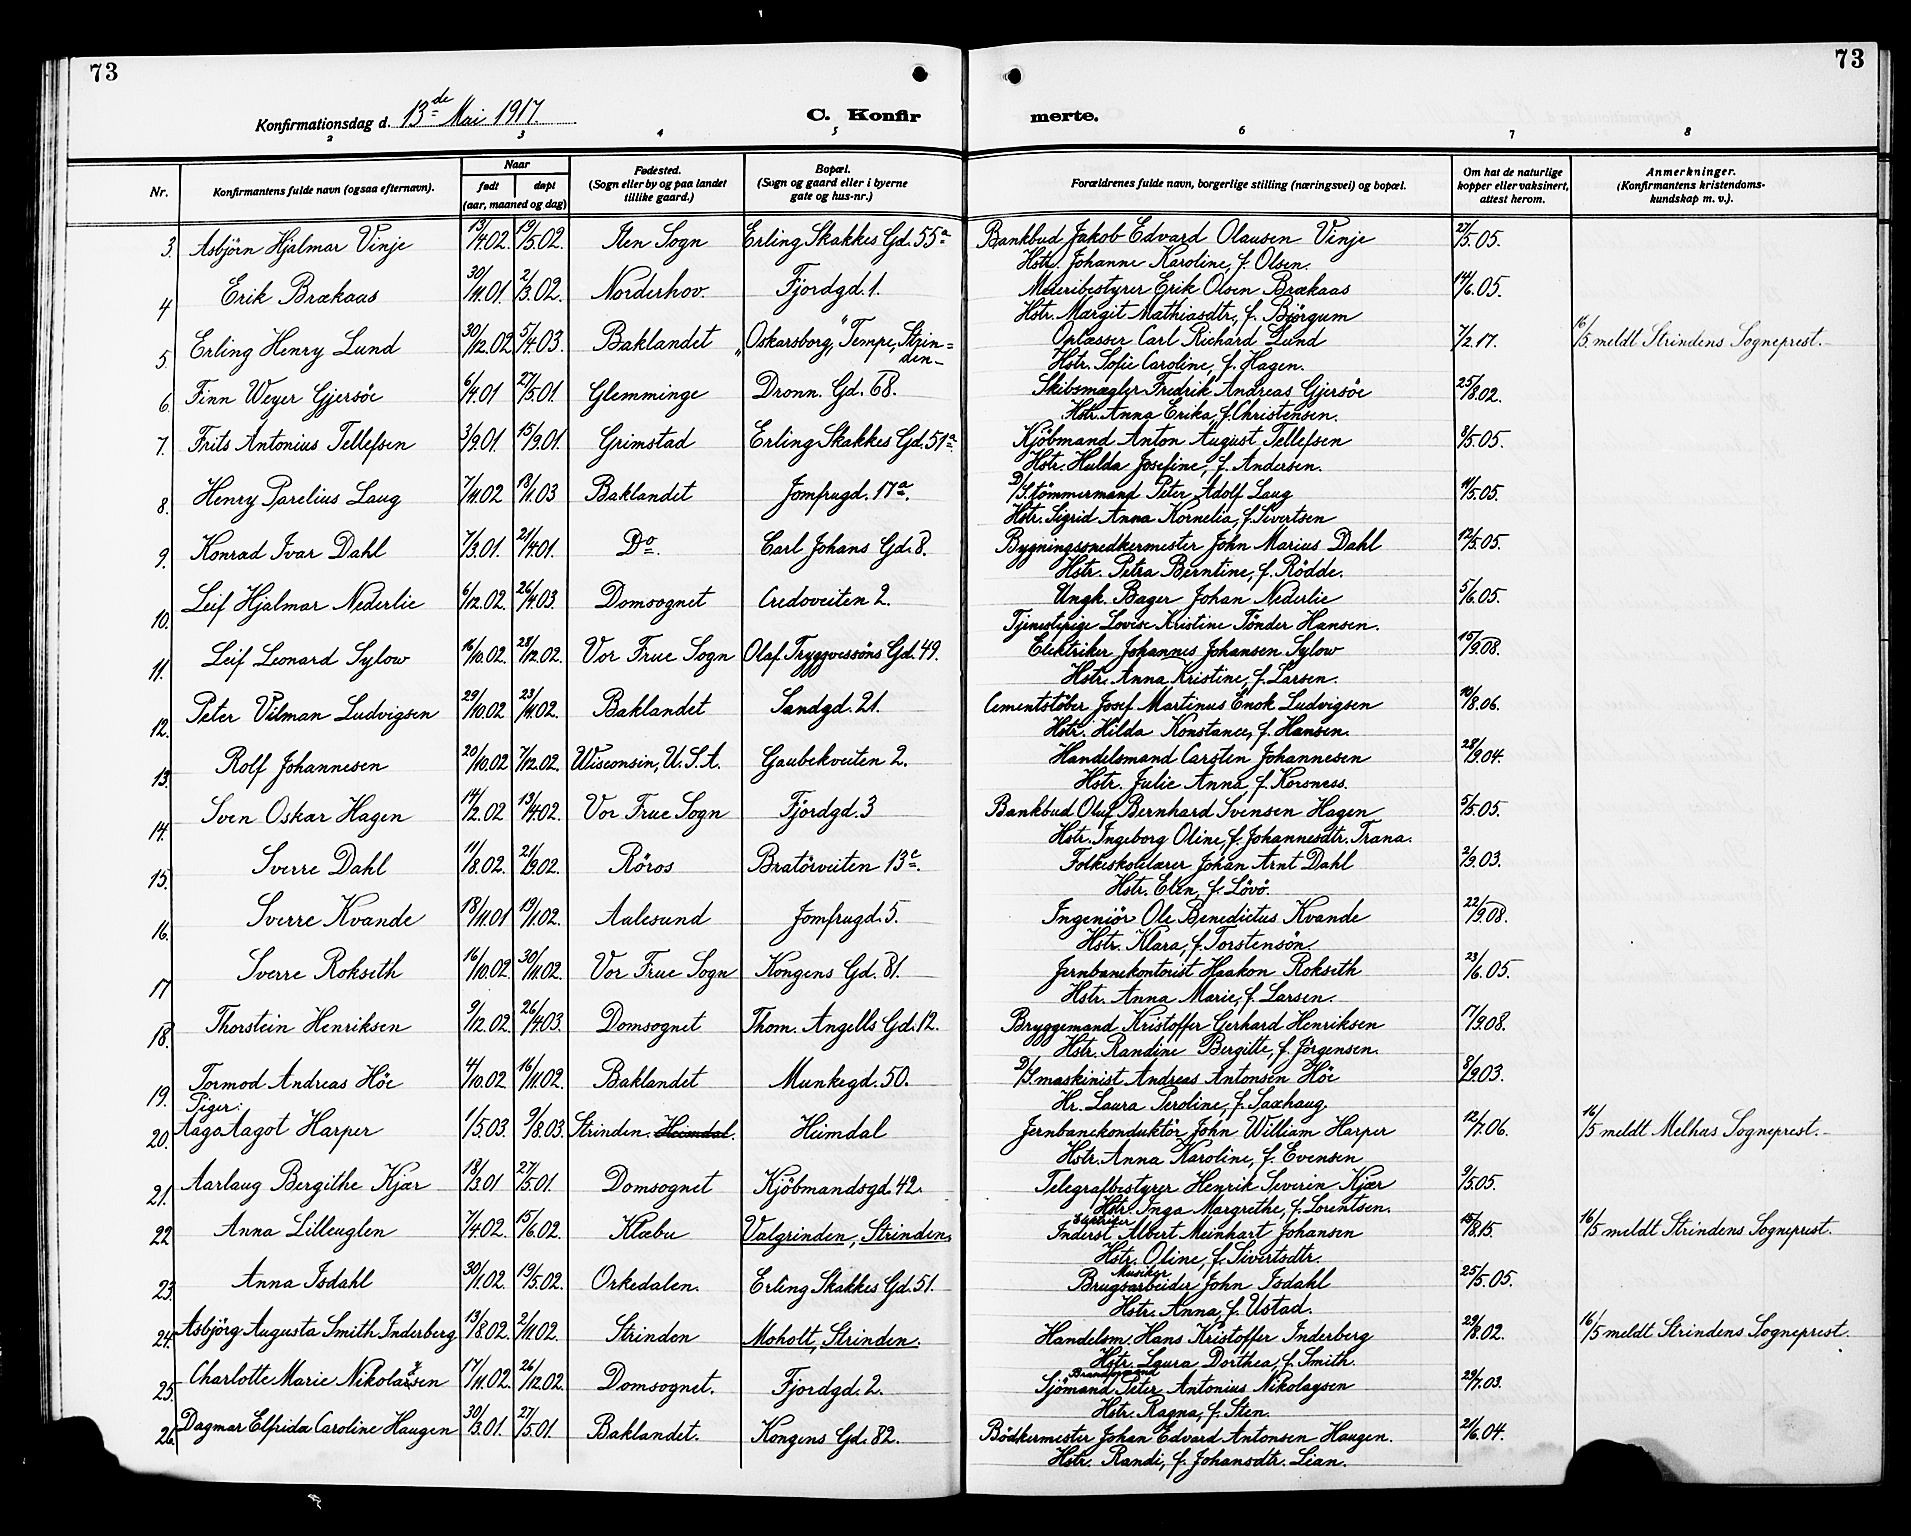 73
73
Konfirmationsdag d. 13de Mai 1917.
C. Konfir
merte.
2 3 4 5 6 7 8
Nr. Konfirmantens fulde navn (ogsaa efternavn). Naar født døpt (aar, maaned og dag) Fødested. (Sogn eller by og paa landet tillike gaard.) Bopæl. (Sogn og gaard eller i byerne gate og hus-nr.) Forældrenes fulde navn, borgerlige stilling (næringsvei) og bopæl. Om hat de naturlige kopper eller vaksinert, attest herom. Anmerkninger. (Konfirmantens kristendomskundskap m. v.).
3. Asbjörn Hjalmar Vinje 13/4.02. 19/5.02. Ilen Sogn Erling Skakkes Gd. 55a Bankbud Jakob Edvard Olausen Vinje 27/5.05.
Hstr. Johanne Karoline, f. Olsen.
4 Erik Brækaas 30/11.01. 2/3.02. Norderhov. Fjordgd. 1. Meieribestyrer Erik Olsen Brækaas 14/6.05.
Hstr. Margit Mathiasdtr., f. Björgum
5. Erling Henry Lund 30/12.02 5/4.03. Baklandet "Oskarsborg," Tempe, Strinden Oplæsser Carl Richard Lund 7/2.17. 16/5 meldt Strindens Sogneprest.
Hstr. Sofie Caroline, f. Hagen.
6. Finn Weyer Gjersöe 6/4.01 27/5.01. Glemminge Dronn. Gd. 68. Skibsmægler Fredrik Andreas Gjersöe 25/8.02.
Hstr. Anna Erika, f. Christensen.
7. Frits Antonius Tellefsen 3/9.01 15/9.01. Grimstad Erling Skakkes Gd. 51a Kjöbmand Anton August Tellefsen 8/5.05.
Hstr. Hulda Josefine, f. Andersen.
8. Henry Parelius Laug 7/11.02 18/1.03 Baklandet Jomfrugd. 17a. D/S.tömmermand Peter Adolf Laug 11/5.05.
Hstr. Sigrid Anna Kornelia, f. Sivertsen
9. Konrad Ivar Dahl 7/3.01. 21/4.01. Do. Carl Johans Gd. 8. Bygningssnedkermester John Marius Dahl 12/5.05.
Hstr. Petra Berntine, f. Rödde.
10. Leif Hjalmar Nederlie 6/12.02. 26/4.03. Domsognet Credoveiten 2. Ungk. Bager Johan Nederlie 5/6.05.
Tjenestepige Lovise Kristine Tönder Hansen.
11. Leif Leonard Sylow 16/10.02. 28/12.02. Vor Frue Sogn Olaf Tryggvessöns Gd. 49. Elektriker Johannes Johansen Sylow 15/9.08.
Hstr. Anna Kristine, f. Larsen.
12. Peter Vilman Ludvigsen 29/10.02 23/11.02. Baklandet Sandgd. 21. Cementstöber Josef Martinus Enok Ludvigsen 10/8.06.
Hstr. Hilda Konstance, f. Hansen.
13. Rolf Johannesen 20/10.02 7/12.02. Wisconsin, U.S.A. Gaubekveiten 2. Handelsmand Carsten Johannesen 28/9.04.
Hstr. Julie Anna f. Korsness.
14. Sven Oskar Hagen 14/2.02 13/4.02. Vor Frue Sogn Fjordgd. 3 Bankbud Oluf Bernhard Svensen Hagen 5/5.05.
Hstr. Ingeborg Oline, f. Johannesdtr. Trana.
15. Sverre Dahl 11/8.02. 21/9.02. Röros Bratörveiten 13c. Folkeskolelærer Johan Arnt Dahl 2/9.03.
Hstr. Elen, f. Lövö.
16. Sverre Kvande 18/11.01 19/1.02. Aalesund Jomfrugd. 5. Ingeniör Ole Benedictus Kvande 22/9.08.
Hstr. Klara, f. Torstensön.
17 Sverre Rokseth 16/10.02 30/11.02. Vor Frue Sogn Kongens Gd. 81. Jernbanekontorist Haakon Rokseth 23/6.05.
Hstr. Anna Marie, f. Larsen.
18. Thorstein Henriksen 9/12.02. 26/4.03. Domsognet Thom. Angells Gd. 12. Bryggemand Kristoffer Gerhard Henriksen 17/9.08.
Hstr. Randine Bergitte, f. Jörgensen.
19. Tormod Andreas Höe 4/10.02 16/11.02. Baklandet Munkegd. 50. D/S.maskinist Andreas Antonsen Höe 8/9.03.
Hr. Laura Peroline, f. Saxhaug.
Piger:
20. Aaga Aagot Harper 1/5.03. 9/8.03. Strinden. Heimdal. Heimdal Jernbanekonduktör John William Harper 12/7.06. 16/5 meldt Melhus Sogneprest.
Hstr. Anna Karoline, f. Evensen
21. Aarlaug Bergithe Kjær 18/3.01 27/5.01. Domsognet Kjöbmandsgd. 42. Telegrafbestyrer Henrik Severin Kjær 9/5.05.
Hstr. Inga Margrethe, f. Lorentsen.
22 Anna Lilleuglen 7/4.02. 15/6.02. Klæbu Valgrinden, Strinden Inderst Albert Meinhart Johansen 15/8.15. 16/5 meldt Strindens Sogneprest.
Hstr. Oline, f. Sivertsdtr.
23. Anna Isdahl 30/1.02. 19/5.02. Orkedalen. Erling Skakkes Gd. 51. Musiker Brugsarbeider John Isdahl 25/5.05.
Hstr. Anna, f. Ustad.
24. Asbjörg Augusta Smith Inderberg 13/8.02. 2/11.02. Strinden Moholt, Strinden. Handelsm. Hans Kristoffer Inderberg 29/8.02. 16/5 meldt Strindens Sogneprest.
Hstr. Laura Dorthea, f. Smith.
25. Charlotte Marie Nikolaysen 17/11.02. 26/12.02. Domsognet. Fjordgd. 2. Sjömand Peter Antonius Nikolaysen 29/7.03.
Hstr. Ragna, f. Sten.
26. Dagmar Elfrida Caroline Haugen 30/3.01. 27/5.01. Baklandet. Kongens Gd. 82. Bödkermester Johan Edvard Antonsen Haugen. 21/6.04.
Hstr. Randi, f. Johansdtr. Lian.